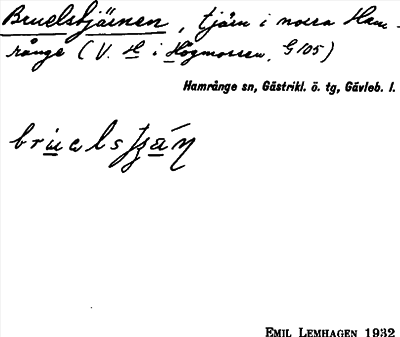 Bruelstjärnen, tjärn i norra Ham-
rånge (V. H i Högmossen, G 105)
Hamrånge sn, Gästrikl. ö. tg, Gävleb. l.
EMIL LEMHAGEN 1932